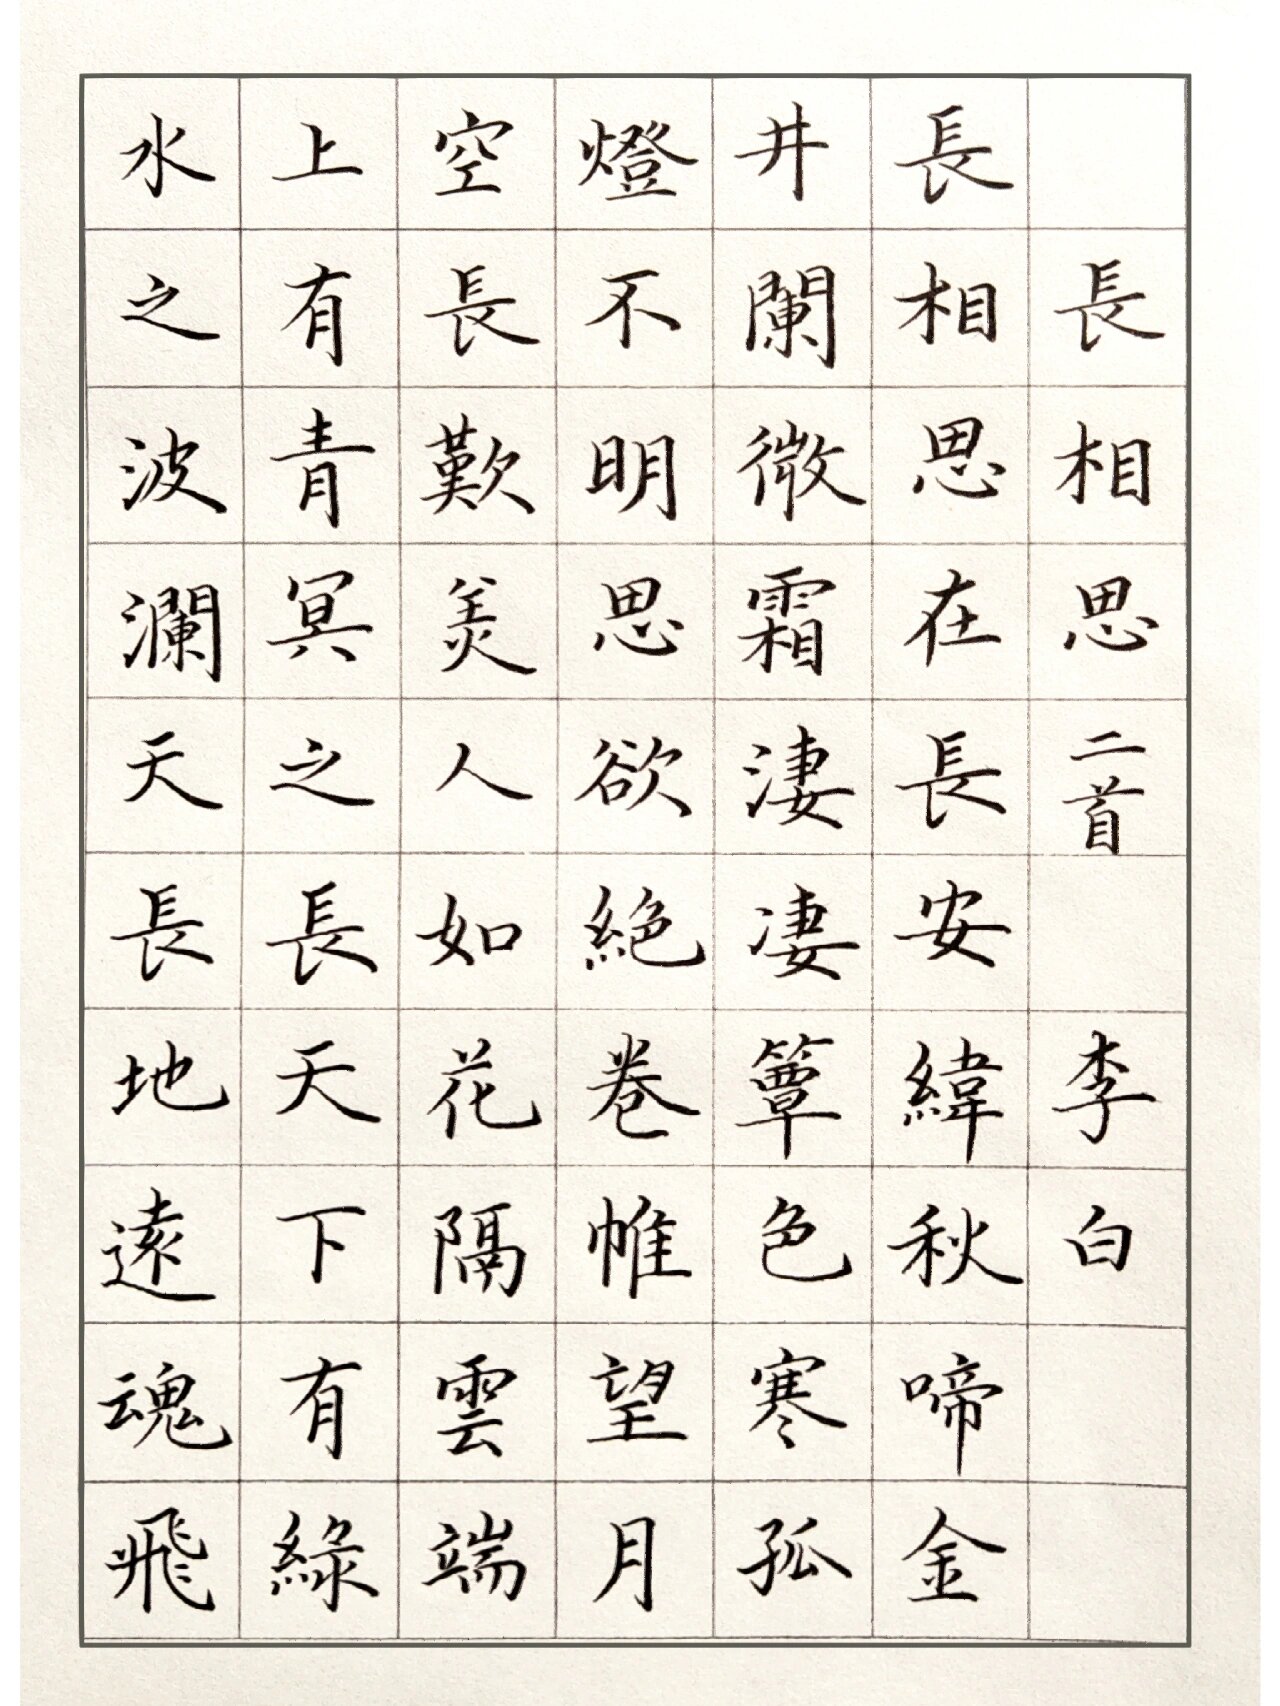 長相思二首 李白
長相思在長安緯秋啼金
井闌微霜淒凄簟色寒孤
燈不明思欲絶卷帷望月
空長歎美人如花隔雲端
上有青冥之長天下有綠
水之波瀾天長地遠魂飛